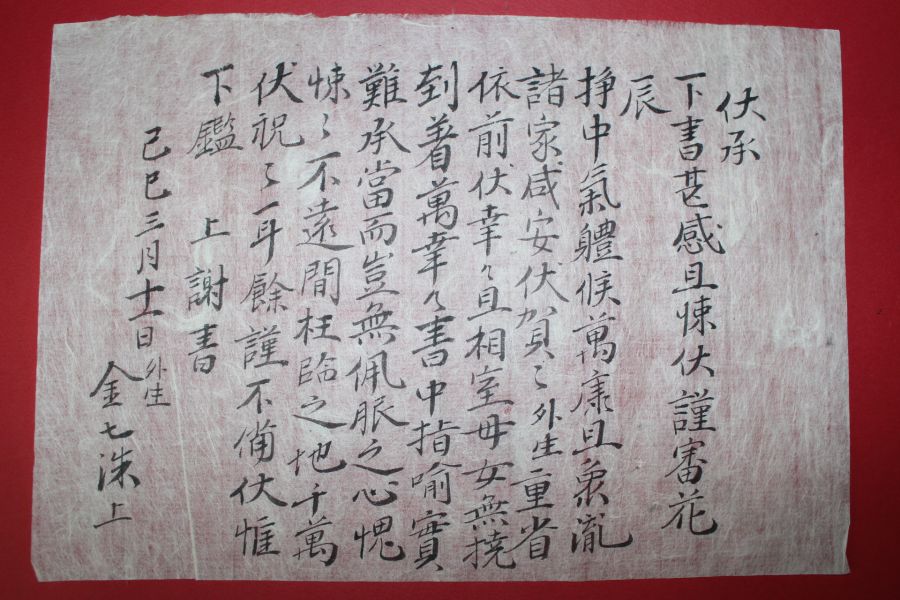 伏承
下書甚感且悚伏謹審花
辰
擀中氣軆候萬康且衆瀧
諸家咸安伏賀〻外生重省
依前伏幸〻且相室母女無撓
到着萬幸〻書中指喻實
難承當而豈無佩服之心愧
悚〻不遠間枉臨之地千萬
伏祝〻耳餘謹不備伏惟
下鑑 上謝書
己巳三月十二日 外生
金七洙上